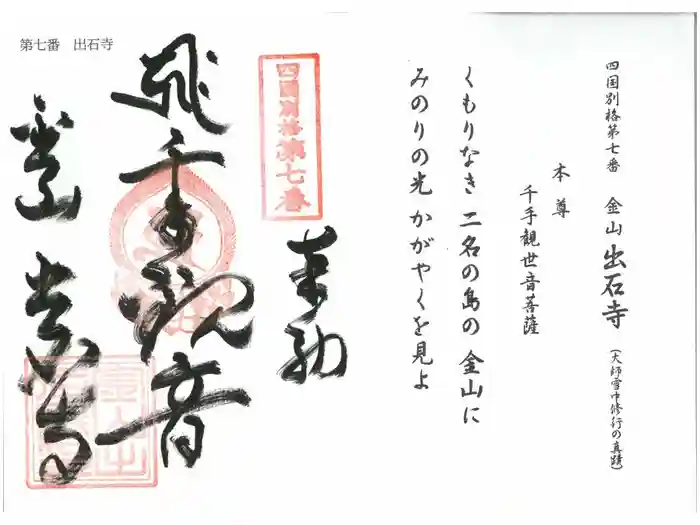 四国別格第七番 金山 出石寺 (大師雪中修行の真蹟)
本尊
千手観世音菩薩
くもりなき 二名の島の 金山に
みのりの光 かがやくを見よ
四国別格第七番
奉納
千手観音
金山 出石寺
第七番 出石寺